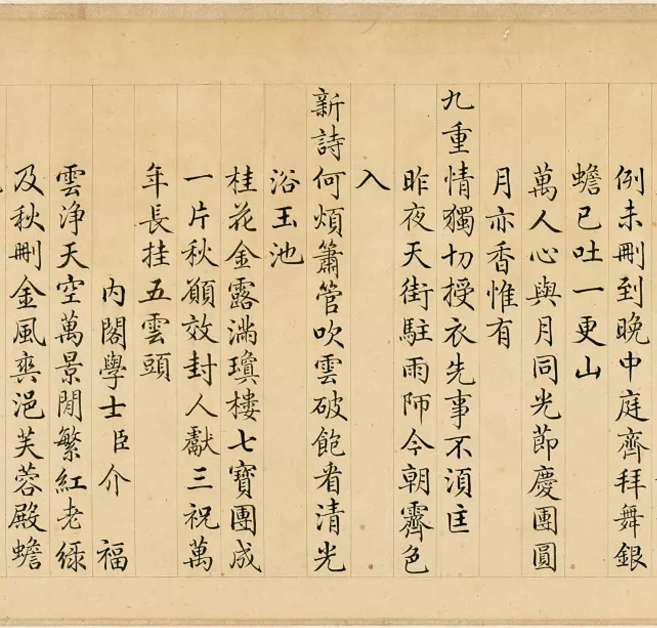 例未刪到晚中庭齊拜舞銀
蟾已吐一更山
萬人心與月同光節慶團圓
月亦香惟有
九重情獨切授衣先事不湏匡
昨夜天街駐雨師今朝霽色
入
新詩何煩簫管吹雲破飽看清光
浴玉池
桂花金露滿瓊樓七寶團成
一片秋願效封人獻三祝萬
年長挂五雲頭
內閣學士臣介 福
雲淨天空萬景閒繁紅老綠
及秋刪金風爽浥芙蓉殿蟾